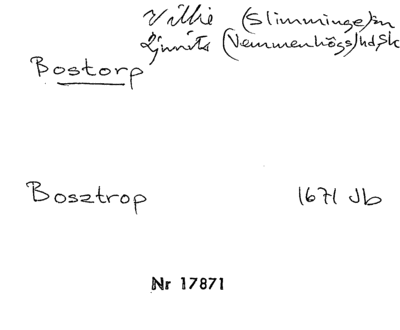 Villie (Slimminge)sn
Ljunits (Vemmenhögs)hd, Sk
Bostorp
Bosztrop 1671 Jb
Nr 17871